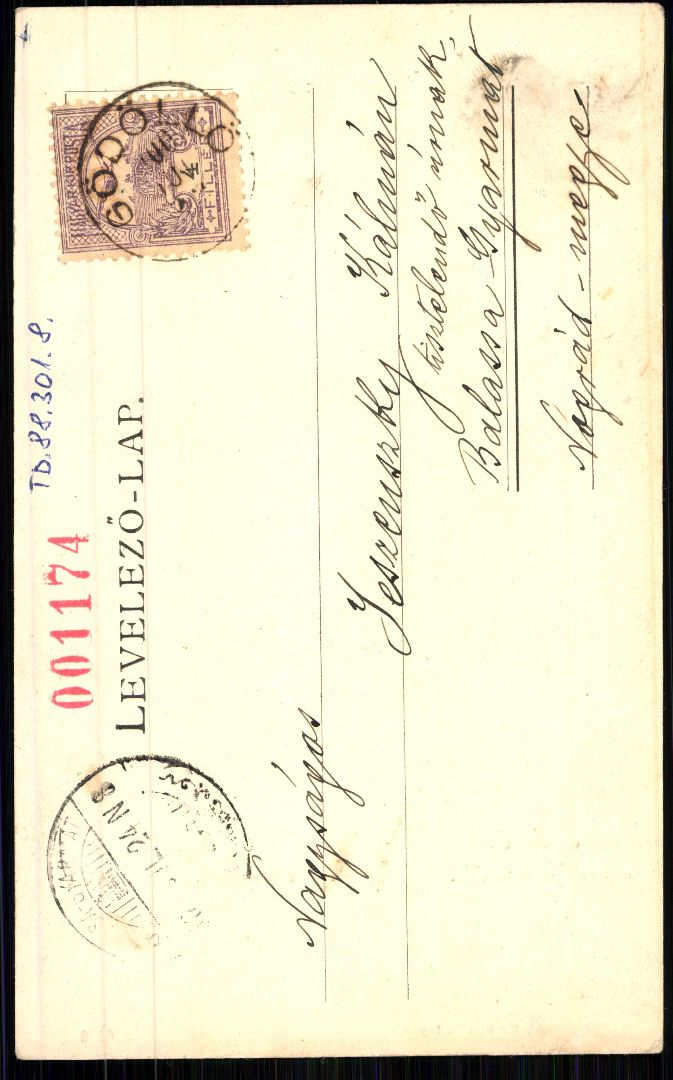 TD.88.301.8.
001174
LEVELEZŐ-LAP.
GÖDÖLLŐ
4
FILLÉR
24 N 8
Nagyságos
Jeszenszky Kálmán
tisztelendő úrnak.
Balassa-Gyarmat
Nográd-megye